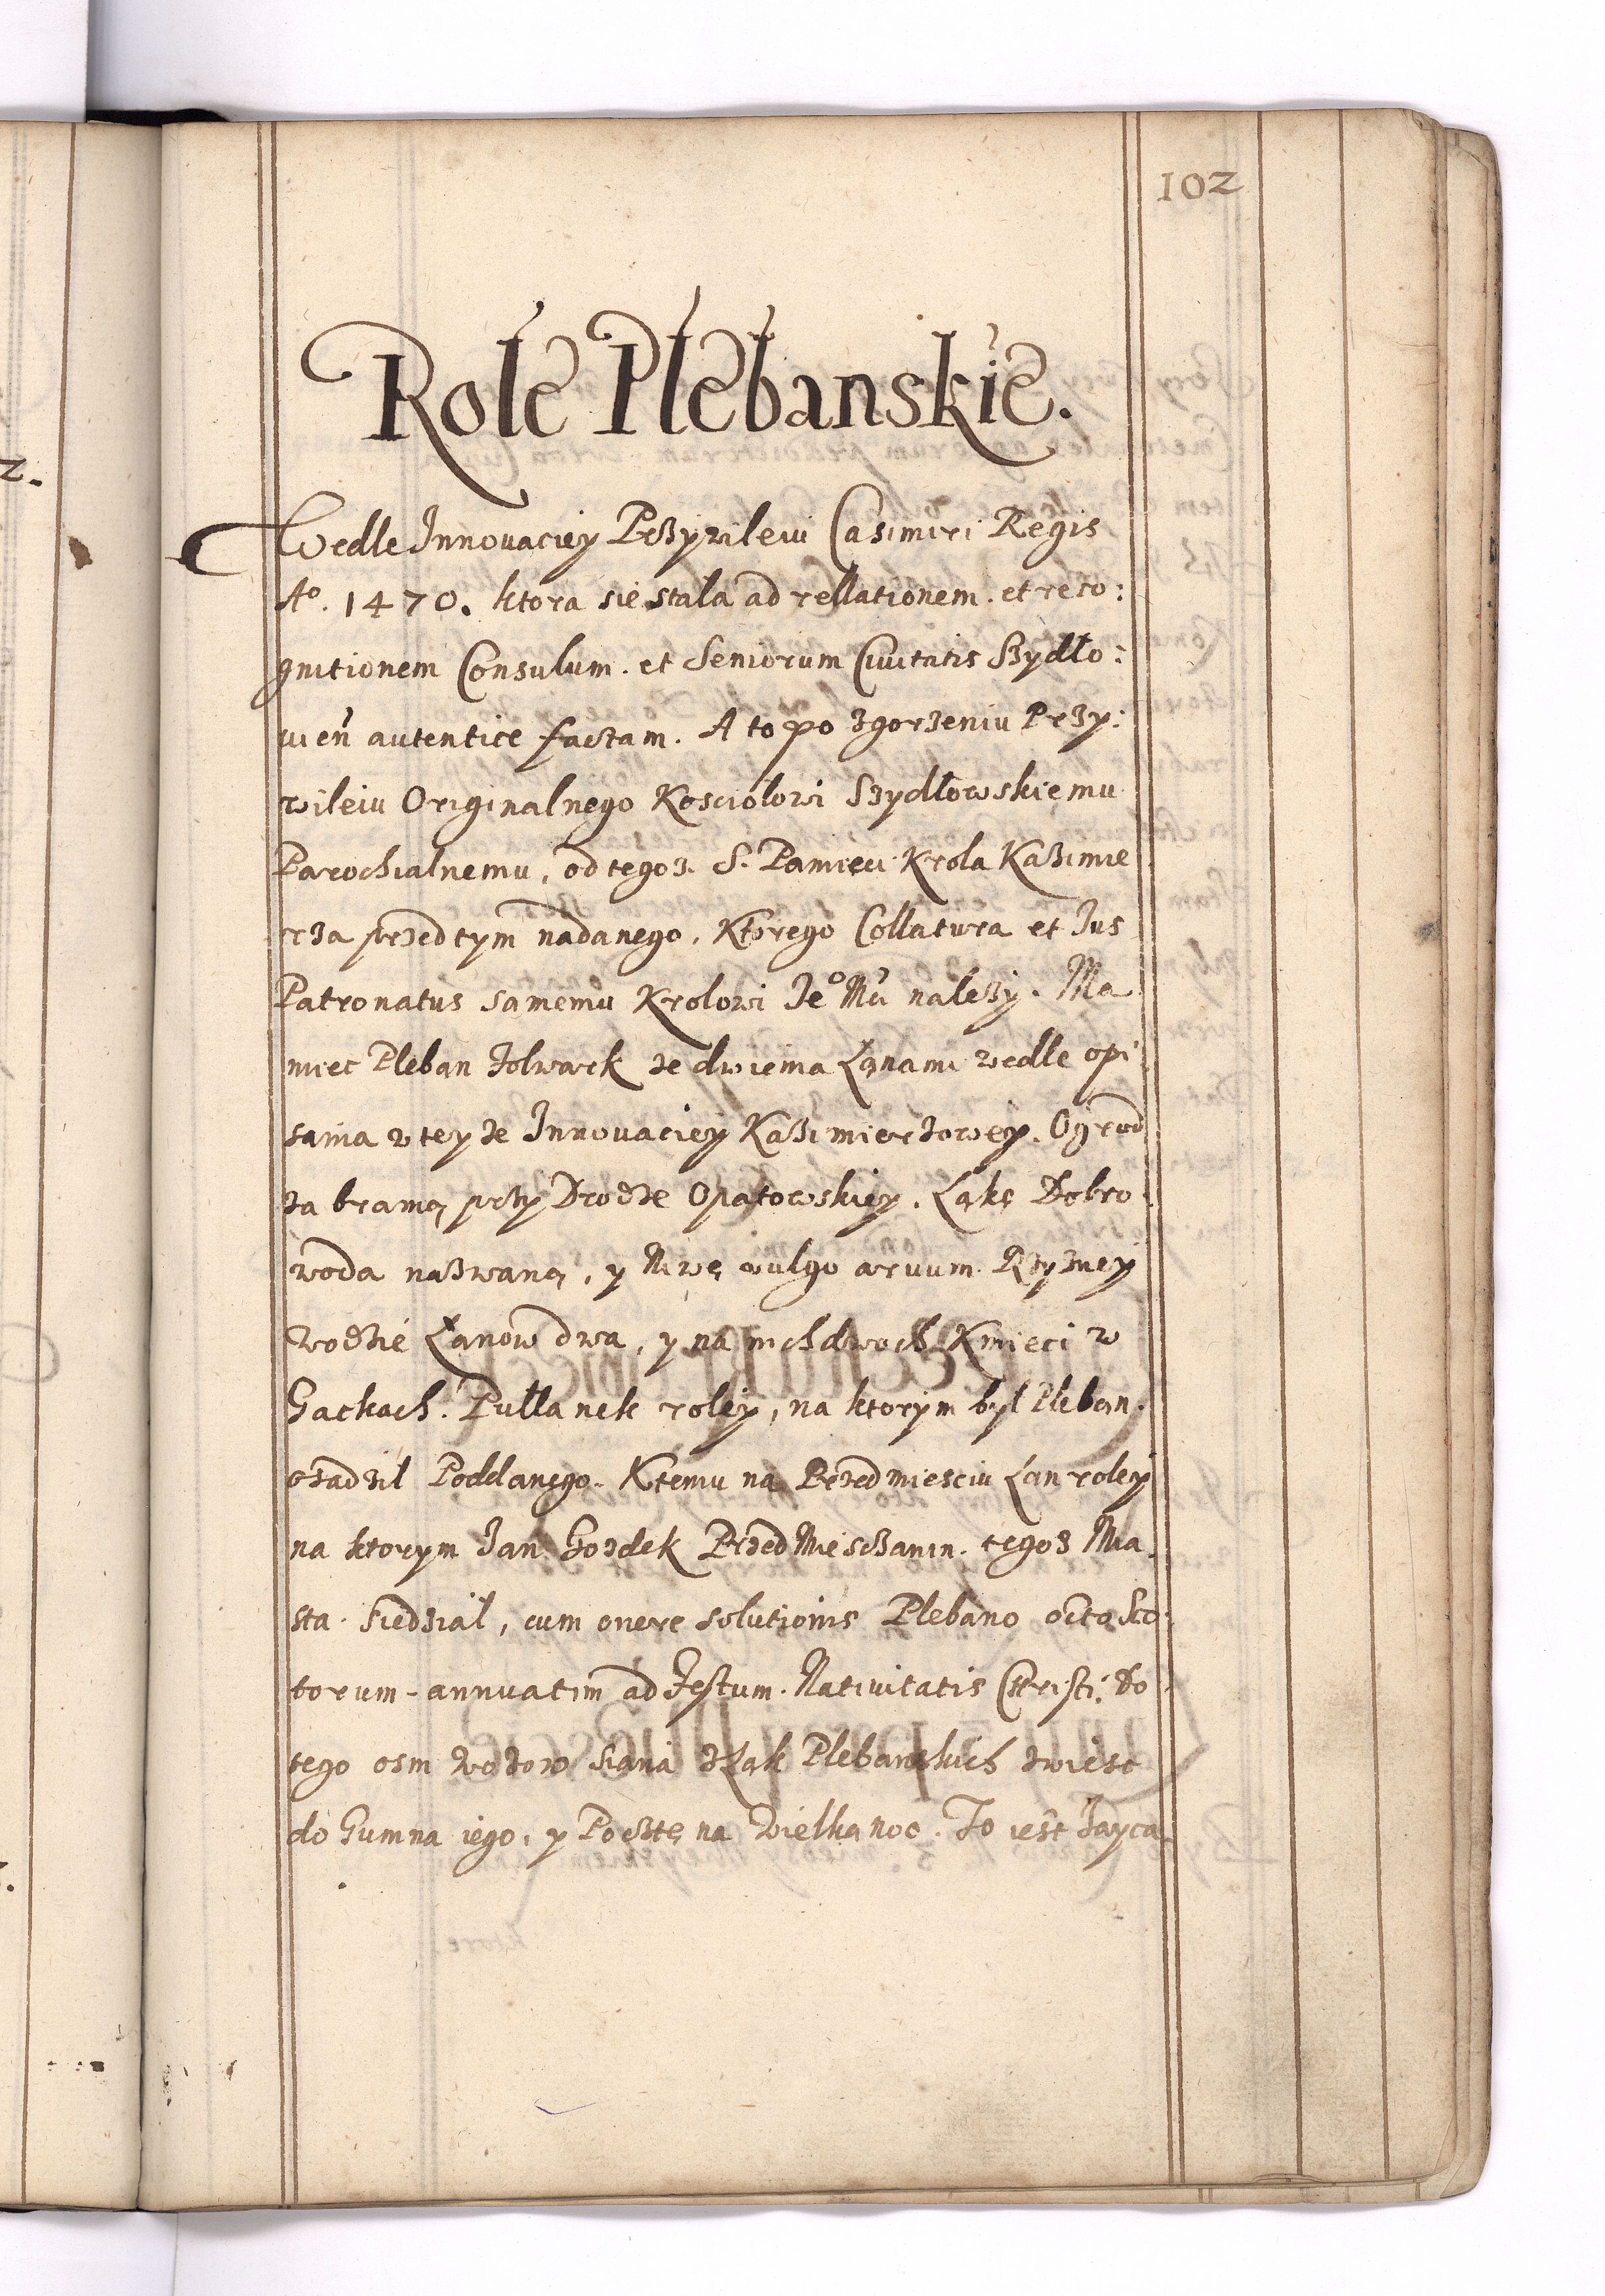 102
Role Plebanskie.
Wedle Innovaciey Przywileiu Casimiri Regis
Aº. 1470. ktora sie stala ad rellationem. et reco:
gnitionem Consulum. et Seniorum Civitatis Szydło:
vień autentice factam. A to po zgorzeniu Przy:
wileiu Originalnego Kosciolowi Szydłowskiemu
Parochialnemu, od tegoz. S. Pamięci Krola Kazimie
rza przed tym nadanego, Ktorego Collatura et Ius
Patronatus samemu Krolowi Jeº Mci nalezy. Ma
miec Pleban Folwark ze dwiema Łanami wedle opi
sania w teyze Innovaciey Kazimierzowey. Ogrod
za bramą przy Drodze Opatowskiey. Łąkę Dobro
woda nazwaną, y Niwę vulgo arvum Rzyzney
wodzie Łanow dwa, y na nich dwoch Kmieci w
Gackach. Pułłanek roley, na ktorym był Pleban.
osadził Poddanego. Ktemu na Przedmiesciu Łan roley
na ktorym Jan Gozdek Przed Mieszczanin. tegoz Mia
sta siedział, cum onere solutionis Plebano octo Sco:
torum annuatim ad Festum. Nativitatis Christi. Do
tego osm wozow siana z Łąk Plebanskich zwiesc
do Gumna iego, y Pocztę na Wielkanoc. To iest Jayca